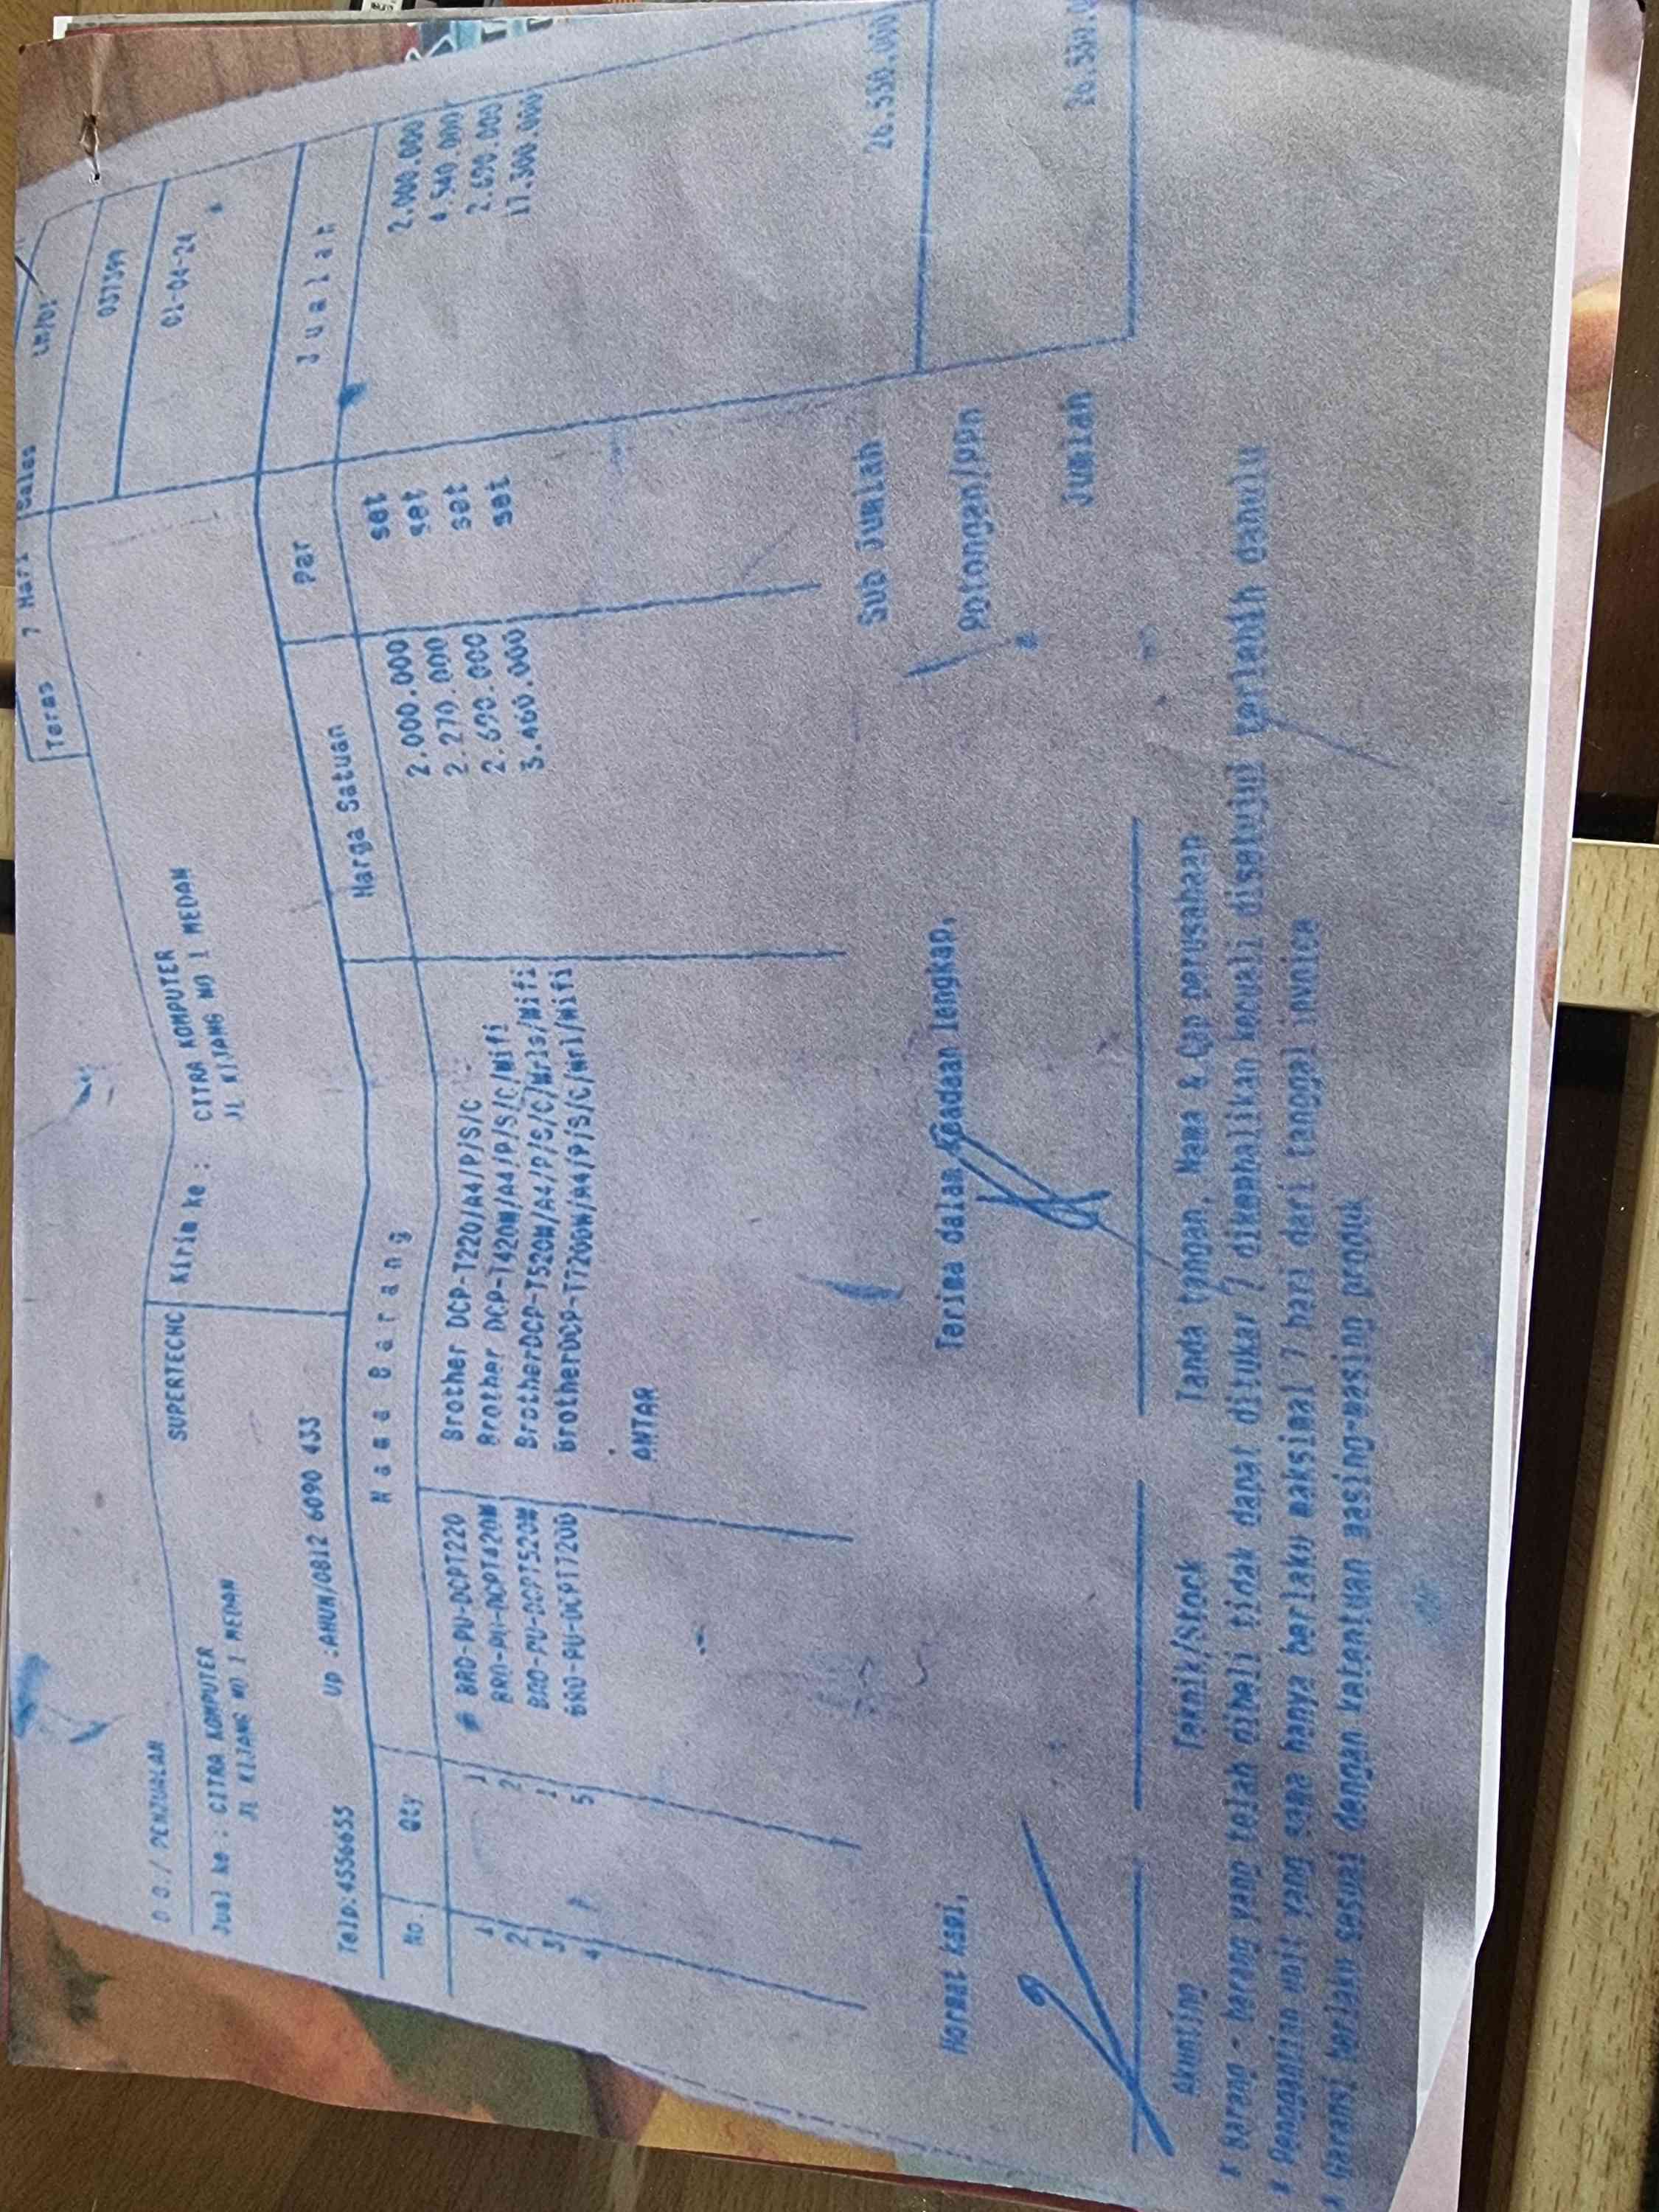 Terms 7 Hari Sales
037399
01-04-24
D O / PENJUALAN
SUPERTECHC
Jual ke : CITRA KOMPUTER
JL KIJANG NO 1 MEDAN
Kirim ke : CITRA KOMPUTER
JL KIJANG NO 1 MEDAN
Telp:4556655 Up :AHUN/0812 6090 433
No. Qty Nama Barang Harga Satuan Per Jumlah
1 1 BRO-PU-DCPT220 Brother DCP-T220/A4/P/S/C 2.000.000 set 2.000.000
2 2 BRO-PU-DCPT420W Brother DCP-T420W/A4/P/S/C/Wifi 2.270.000 set 4.540.000
3 1 BRO-PU-DCPT520W BrotherDCP-T520W/A4/P/S/C/Wrls/Wifi 2.690.000 set 2.690.000
4 5 BRO-PU-DCPT720D BrotherDCP-T720DW/A4/P/S/C/Wrl/Wifi 3.460.000 set 17.300.000
ANTAR
Sub Jumlah 26.530.000
Potongan/PPn
Jumlah 26.530.0
Hormat kami,
Terima dalam keadaan lengkap,
Akunting
Teknik/Stock
Tanda tangan, Nama & Cap perusahaan
* Barang - barang yang telah dibeli tidak dapat ditukar / dikembalikan kecuali disetujui terlebih dahulu
* Penggantian unit yang sama hanya berlaku maksimal 7 hari dari tanggal invoice
* Garansi berlaku sesuai dengan ketentuan masing-masing produk